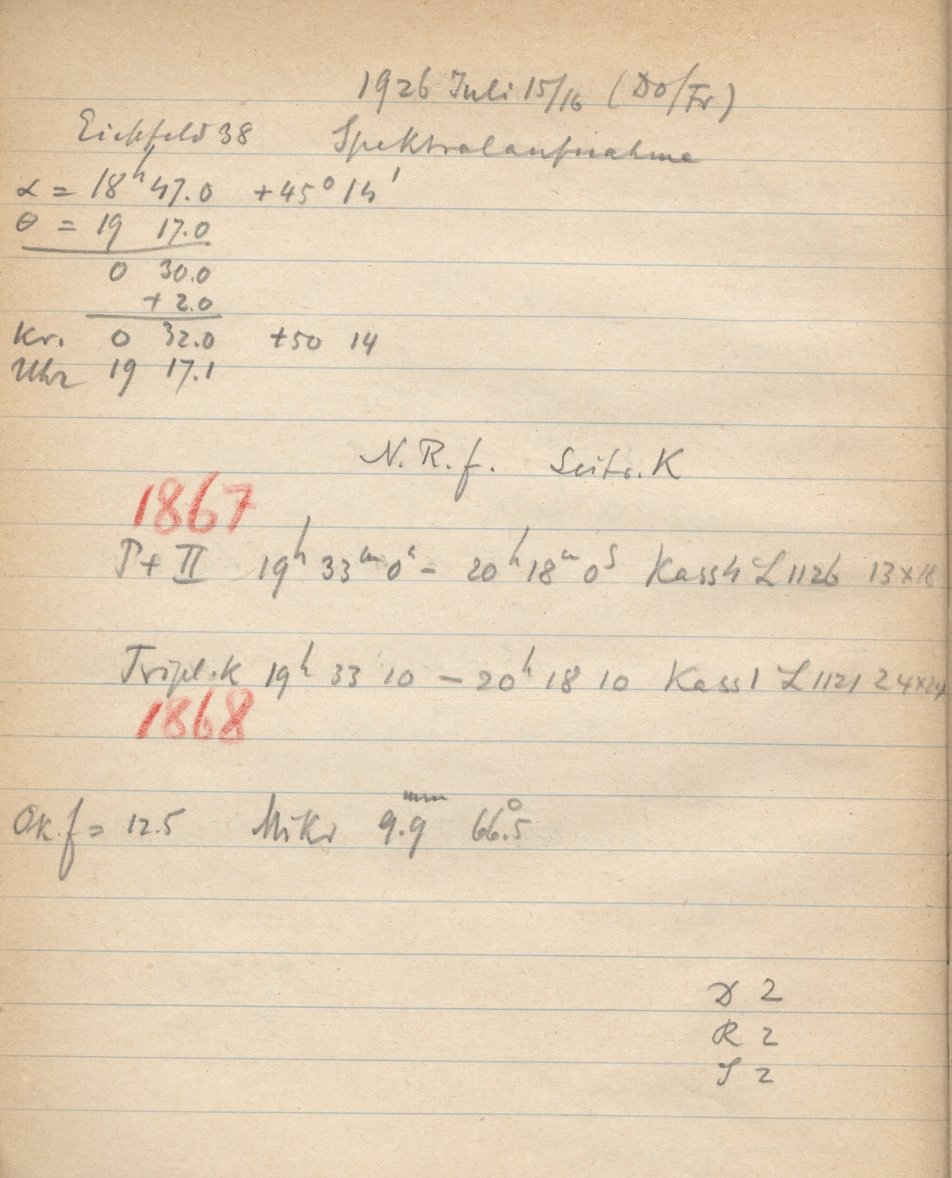 1926 Juli 15/16 (Do/Fr)
Eichfeld 38 Spektralaufnahme
α = 18ʰ 47.0 +45° 14'
θ = 19 17.0
0 30.0
+ 2.0
Kr. 0 32.0 +50 14
Uhr 19 17.1
N.R.f. Seitr. K
1867
P + II 19ʰ 33ᵐ 0ˢ - 20ʰ 18ᵐ 0ˢ Kass 4 L 1126 13×18
Tripl. K 19ʰ 33 10 - 20ʰ 18 10 Kass 1 L 1121 24×24
1868
Ok. f = 12.5 Mikr 9.9ᵐᵐ 66.5°
D 2
R 2
S 2